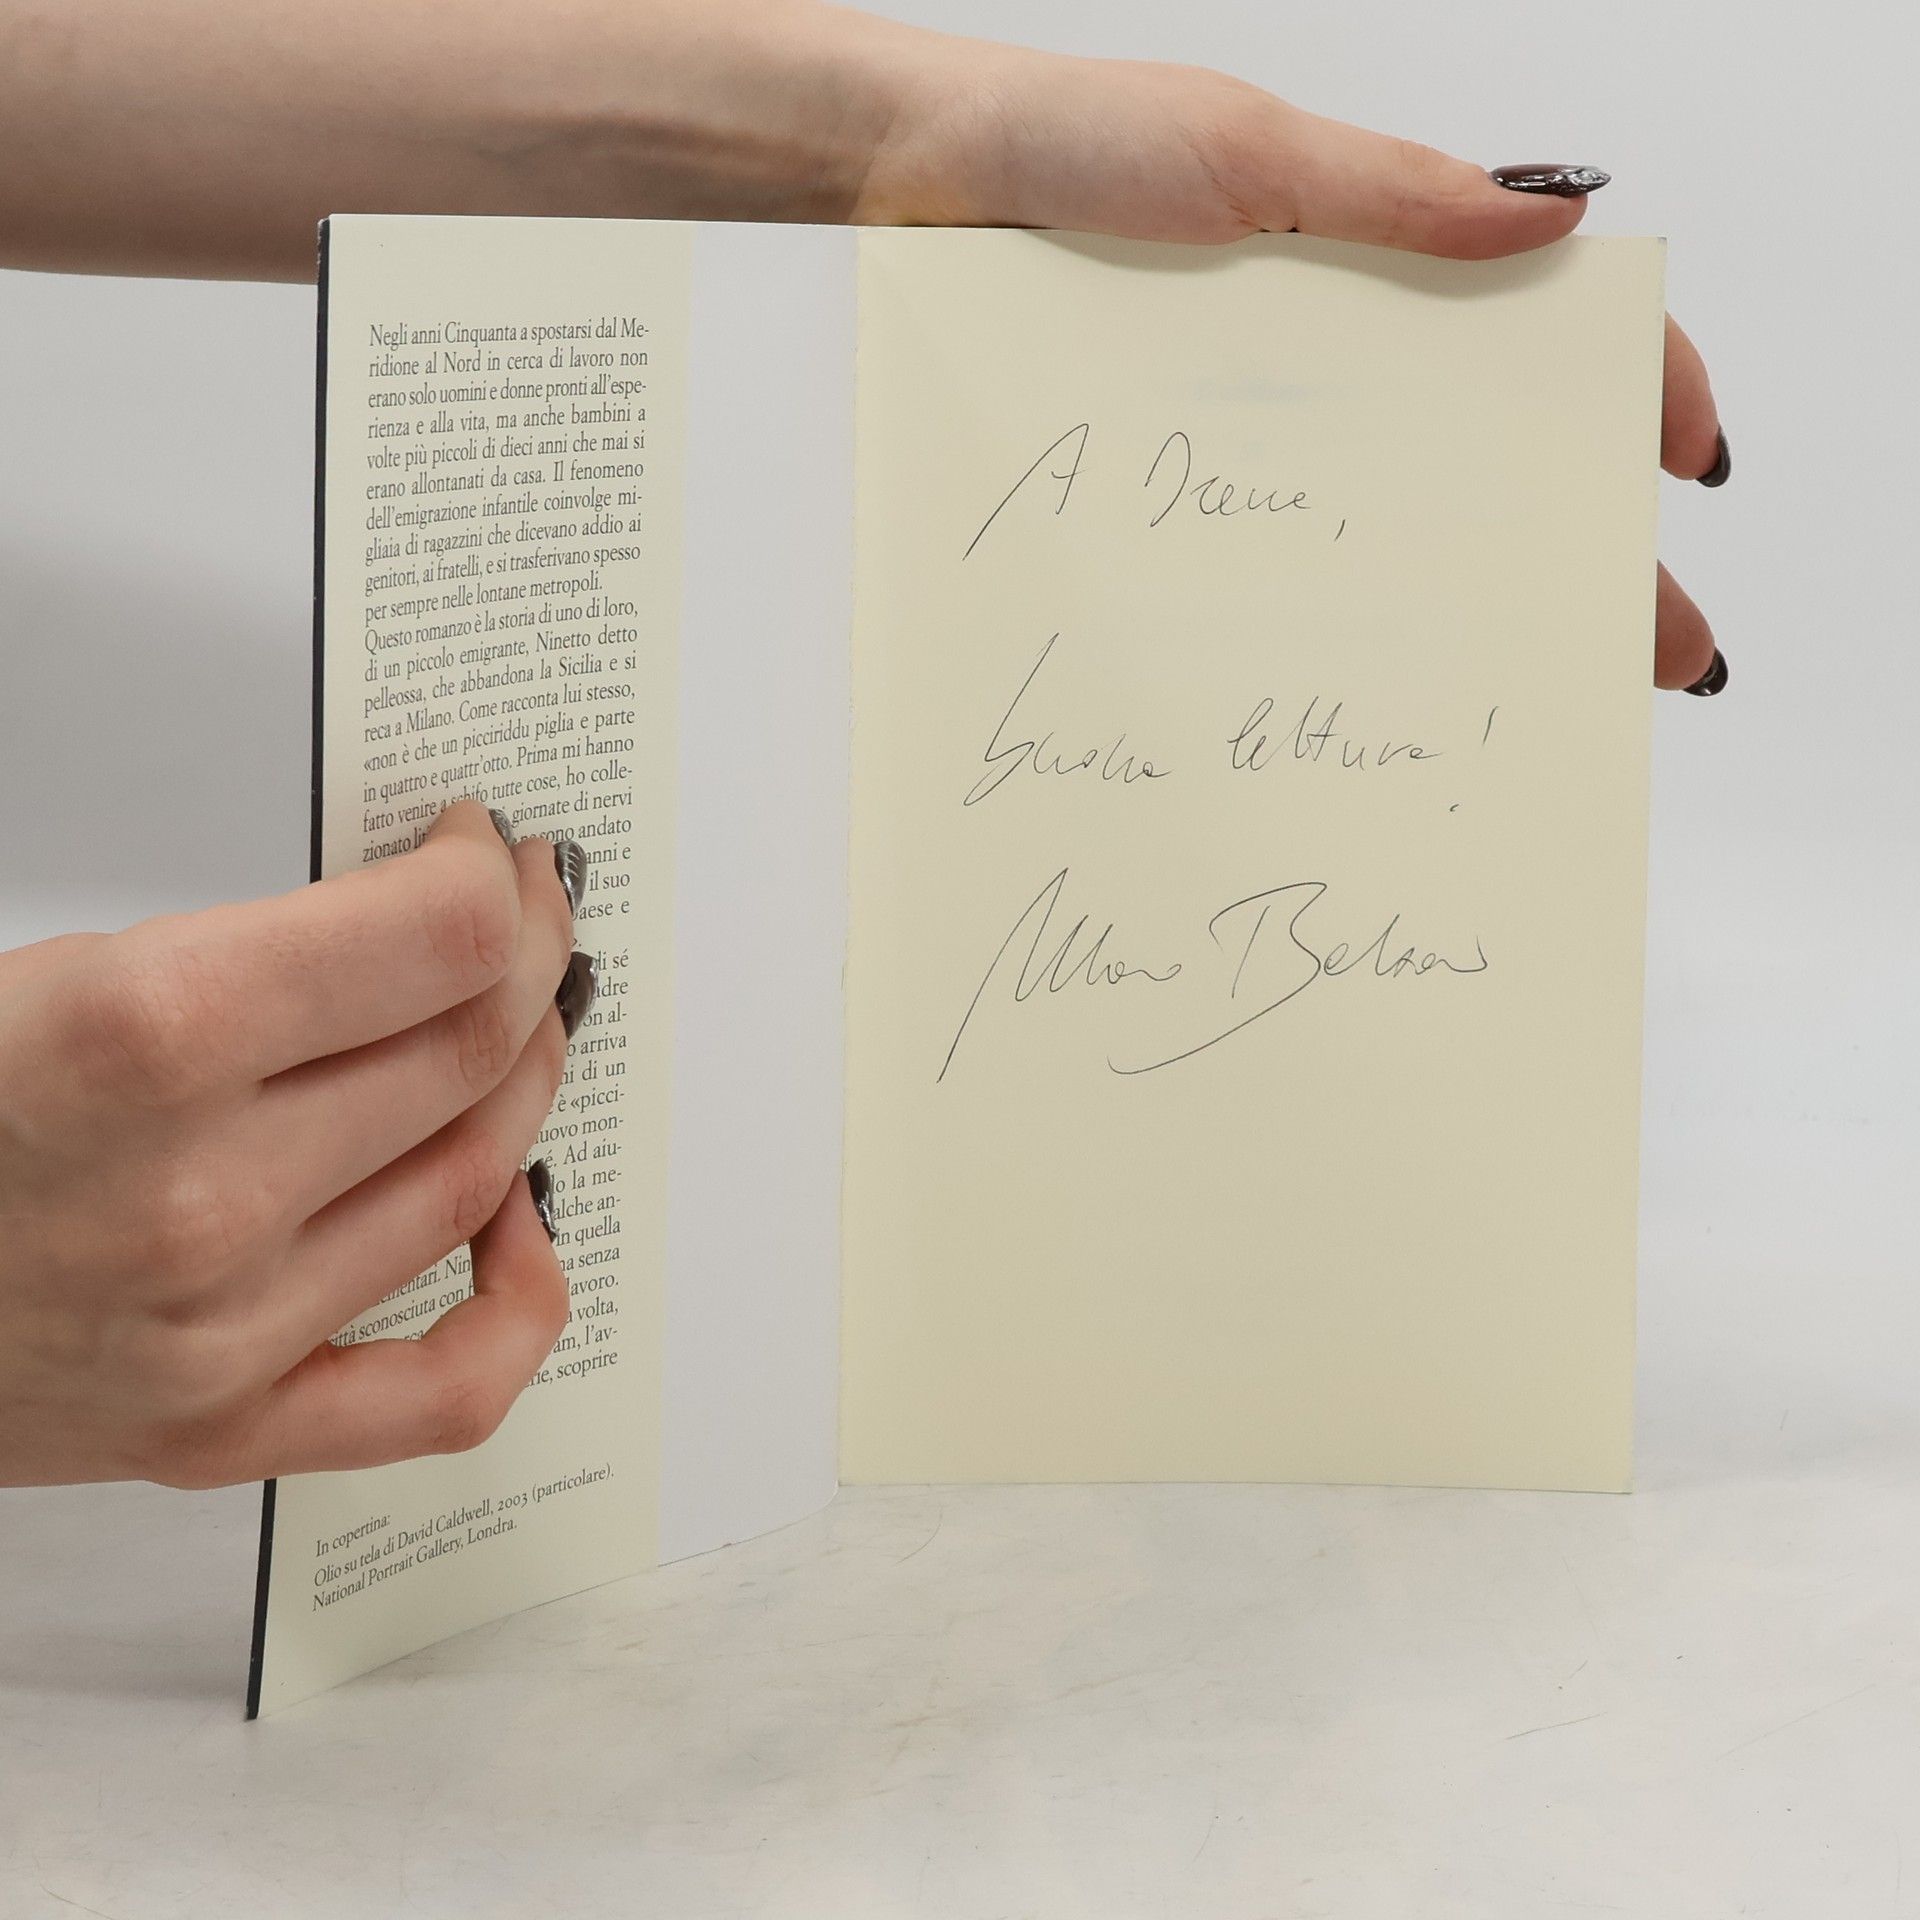 Negli anni Cinquanta a spostarsi dal Me-
ridione al Nord in cerca di lavoro non
erano solo uomini e donne pronti all'espe-
rienza e alla vita, ma anche bambini a
volte più piccoli di dieci anni che mai si
erano allontanati da casa. Il fenomeno
dell'emigrazione infantile coinvolge mi-
gliaia di ragazzini che dicevano addio ai
genitori, ai fratelli, e si trasferivano spesso
per sempre nelle lontane metropoli.
Questo romanzo è la storia di uno di loro,
di un piccolo emigrante, Ninetto detto
pelleossa, che abbandona la Sicilia e si
reca a Milano. Come racconta lui stesso,
«non è che un picciriddu piglia e parte
in quattro e quattr'otto. Prima mi hanno
fatto venire a schifo tutte cose, ho colle-
zionato giornate di nervi
sono andato
anni e
il suo
paese e
di sé
adre
on al-
arriva
di un
è «picci-
nuovo mon-
di sé. Ad aiu-
la me-
alche an-
In quella
senza
mentari. Nin
lavoro.
città sconosciuta con
volta,
am, l'av-
scoprire
In copertina:
Olio su tela di David Caldwell, 2003 (particolare).
National Portrait Gallery, Londra.
A Irene,
buona lettura!